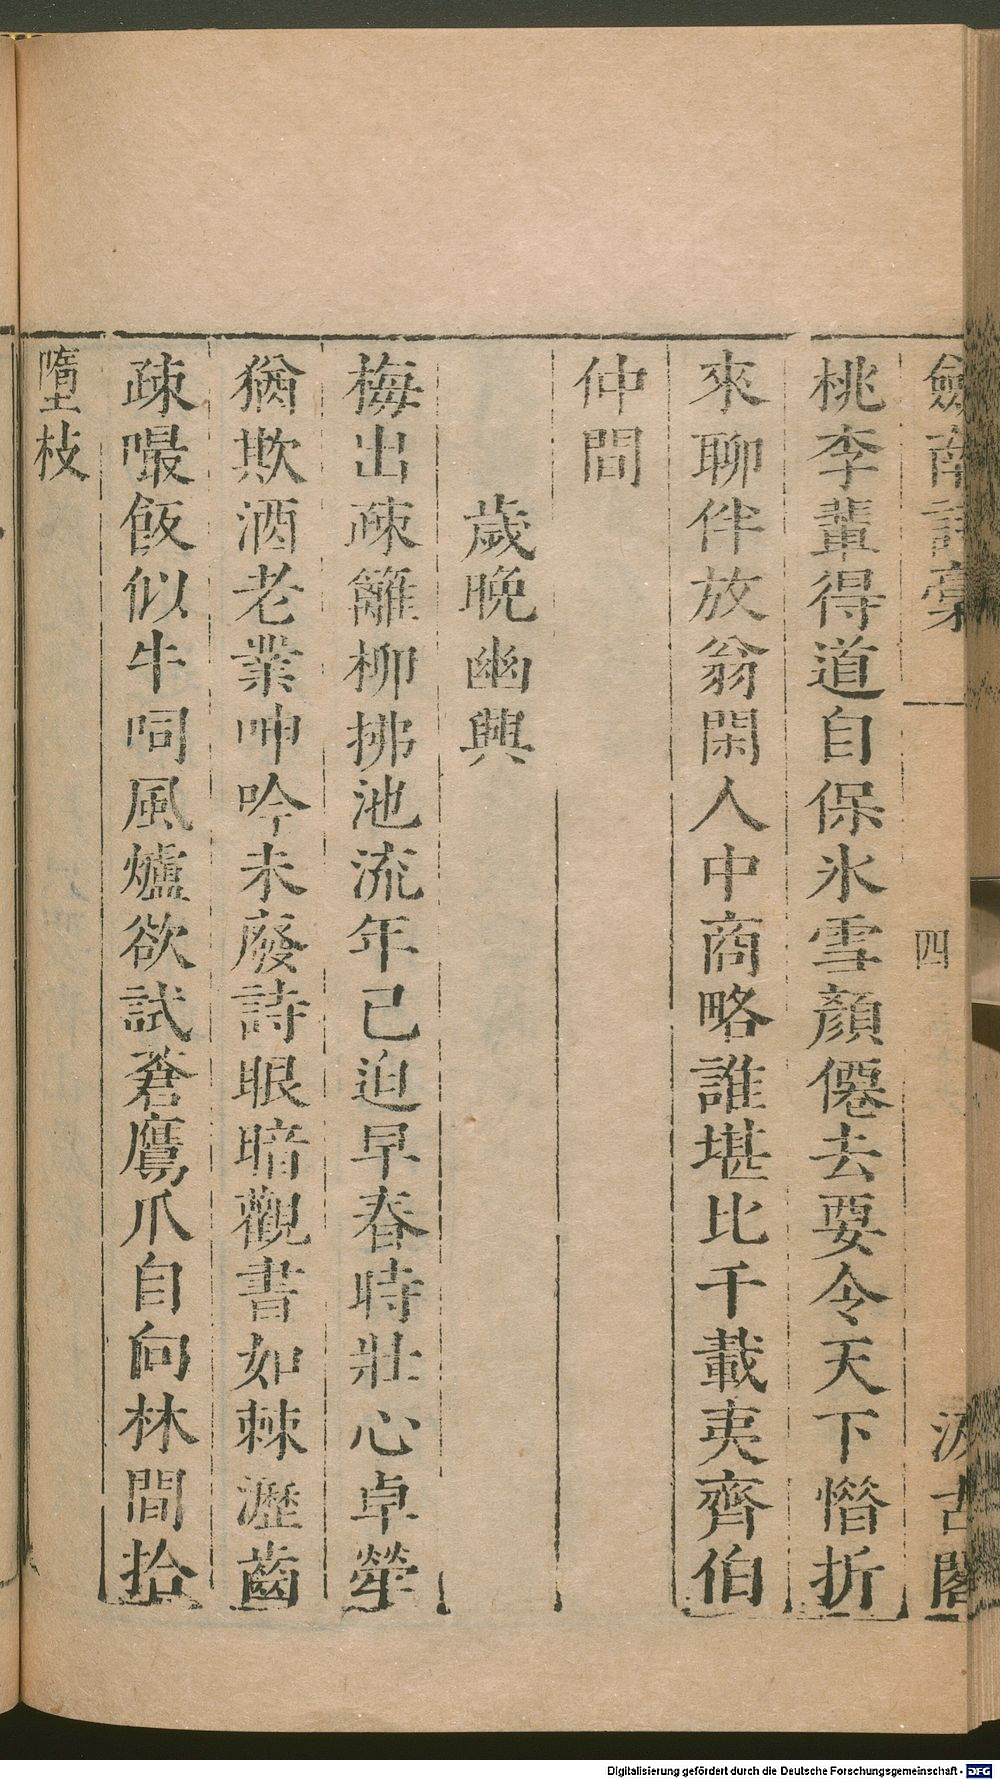 劍南詩稾
四
汲古閣
桃李輩得道自保氷雪顏僊去要令天下憯折
來聊伴放翁閑人中商略誰堪比千載夷齊伯
仲間
歲晚幽興
梅出疎籬柳拂池流年已迫早春時壯心卓犖
猶欺酒老業呻吟未廢詩眼暗觀書如棘澀齒
疎嘬飯似牛呞風爐欲試蒼鷹爪自向林間拾
墮枝
Digitalisierung gefördert durch die Deutsche Forschungsgemeinschaft - DFG